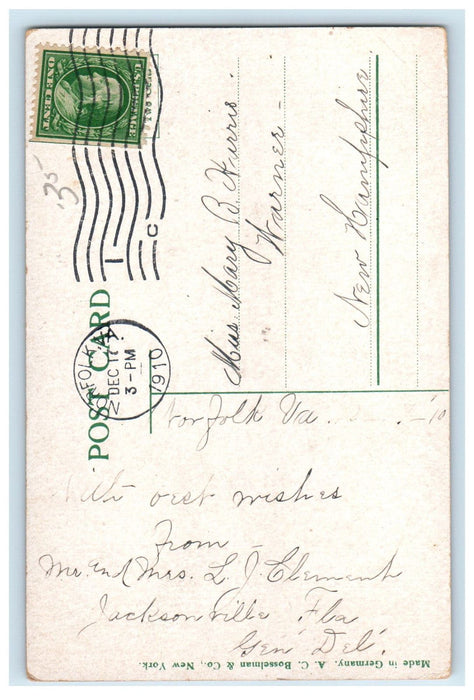 U.S. POSTAGE
ONE CENT
'35
1 C
NORFOLK, VA.
DEC 11
3-PM
1910
POST CARD
Miss. Mary B Harris
Warner –
New Hampshire
Norfolk Va
With best wishes
From –
Mr. and Mrs. L. J. Clement
Jacksonville Fla
Gen' Del'.
Made in Germany. A. C. Bosselman & Co., New York.